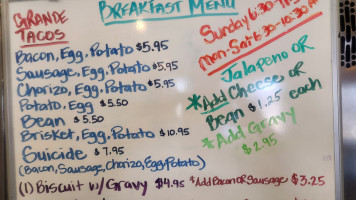 BREAKFAST MENU
GRANDE
TACOS
Bacon, Egg, Potato $5.95
Sausage, Egg, Potato $5.95
Chorizo, Egg, Potato $5.95
Potato, Egg $5.50
Bean $5.50
Brisket, Egg, Potato $10.95
Suicide $7.95
(Bacon, Sausage, Chorizo, Egg, Potato)
(1) Biscuit w/Gravy $4.95 *Add Bacon OR Sausage $3.25
Sunday 6:30-11
Mon-Sat 6:30-10:30 AM
Jalapeno OR
*Add Cheese or
Bean $1.25 each
*Add Gravy
$2.95